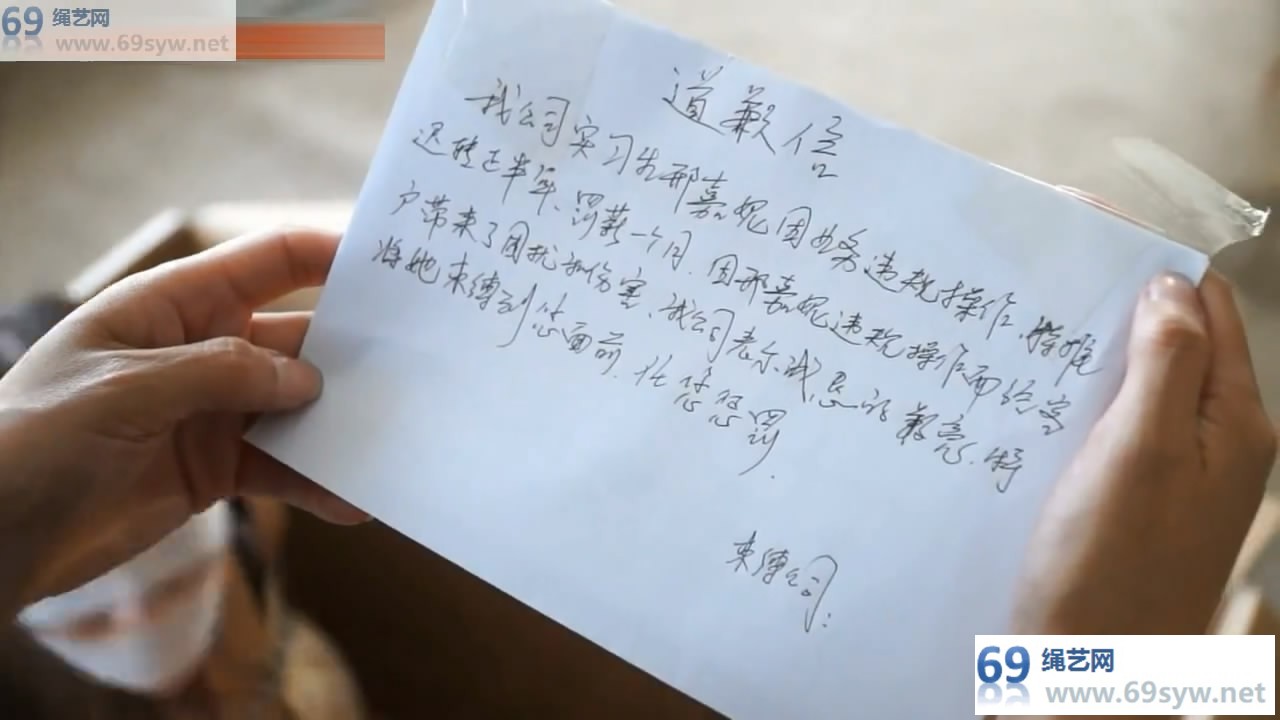 69 绳艺网
www.69syw.net
道歉信
我公司实习生邢嘉妮因业务违规操作,将推
迟转正半年、罚薪一个月.因邢嘉妮违规操作而给客
户带来了困扰和伤害、我公司表示诚恳的歉意.将
将她束缚到您面前.任您惩罚.
束缚公司:
69 绳艺网
www.69syw.net